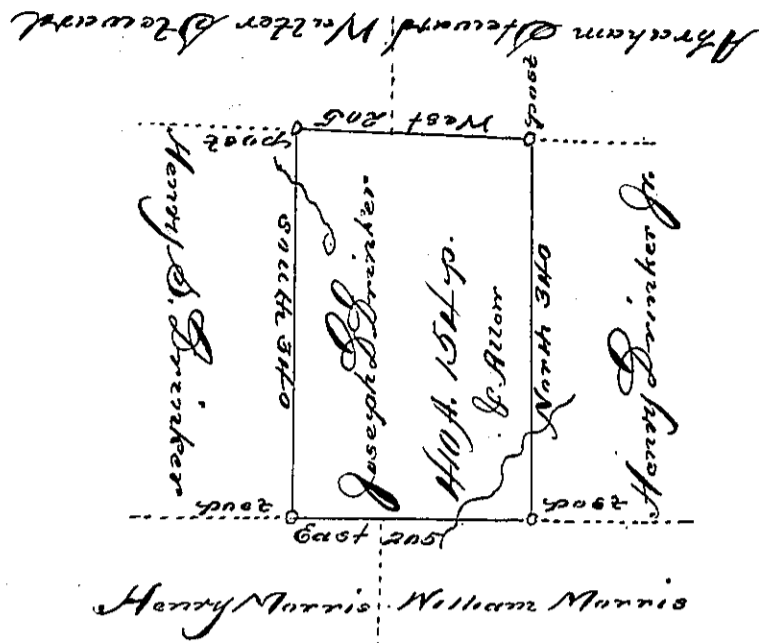 Abraham Steward Walter Steward
beech
West 205
post
Henry S. Drinker
South 340
Joseph D. Drinker
410 A. 154 p.
& Allow
North 340
Henry Drinker Jr.
beech
beech
East 205
Henry Morris William Morris